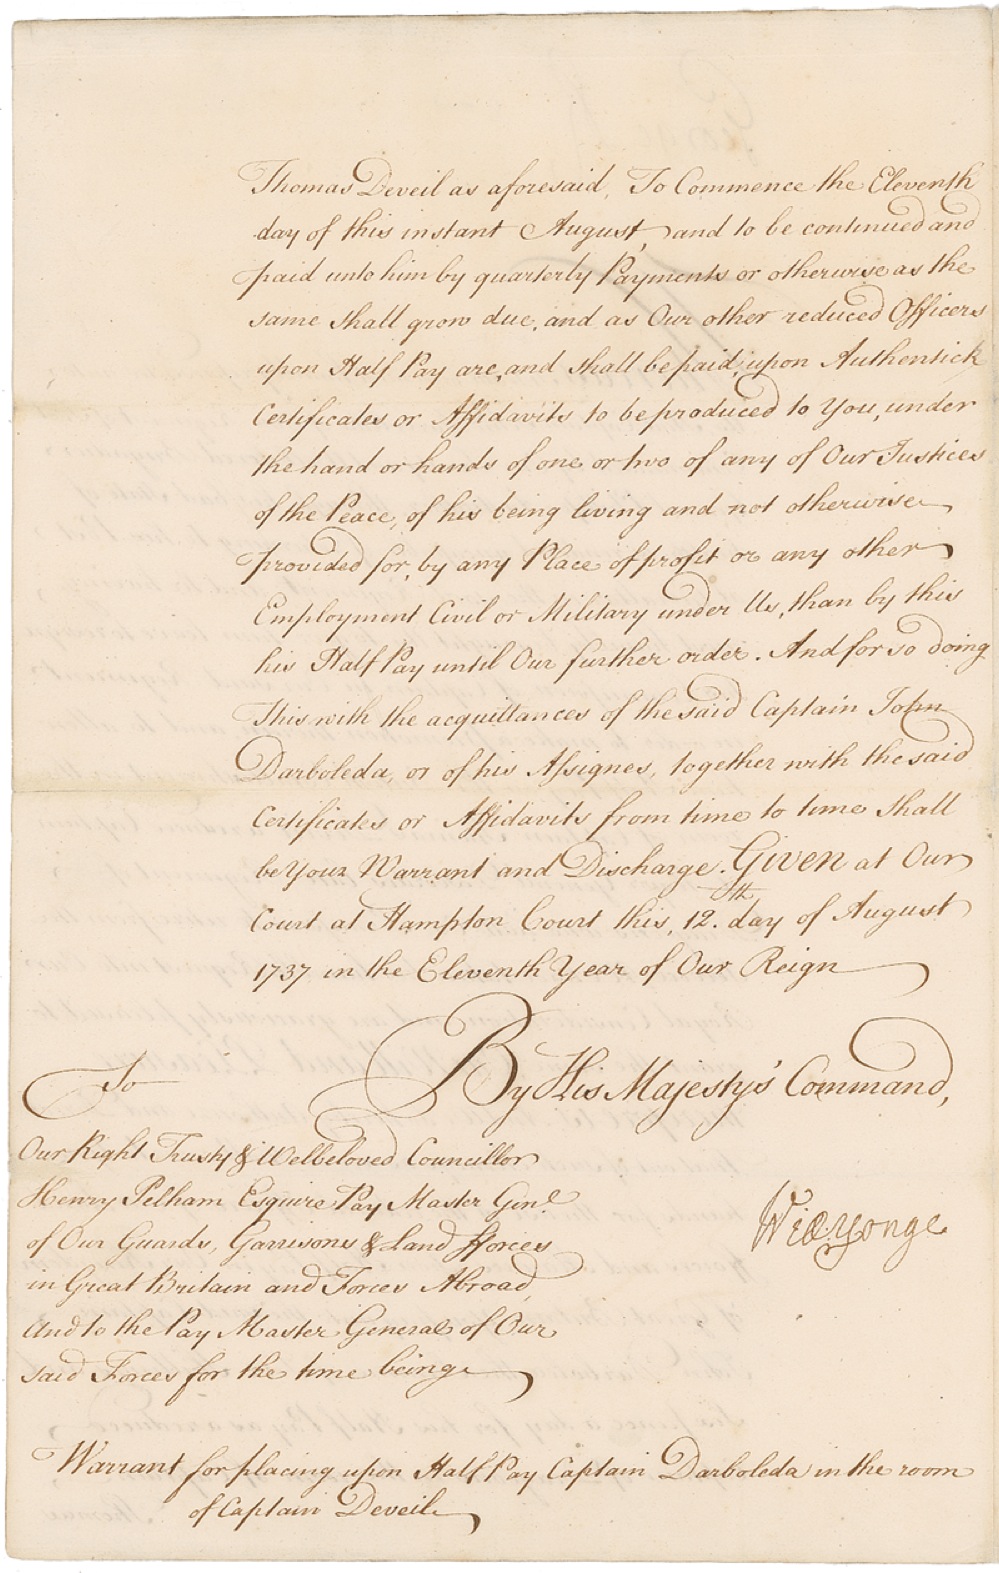 Thomas Deveil as aforesaid, To Commence the Eleventh
day of this instant August, and to be continued and
paid unto him by quarterly Payments or otherwise as the
same shall grow due, and as Our other reduced Officers
upon Half Pay are, and shall be paid, upon Authentick
Certificates or Affidavits to be produced to You, under
the hand or hands of one or two of any of Our Justices
of the Peace, of his being living and not otherwise
provided for, by any Place of profit or any other
Employment Civil or Military under Us, than by this
his Half Pay until Our further order. And for so doing
this with the acquittances of the said Captain John
Darboleda, or of his Assignes, together with the said
Certificates or Affidavits from time to time shall
be Your Warrant and Discharge. Given at Our
Court at Hampton Court this, 12.th day of August
1737 in the Eleventh Year of Our Reign
By His Majesty's Command,
To
Our Right Trusty & Welbeloved Councillor
Henry Pelham Esquire Pay Master Genl.
of Our Guards, Garrisons & Land fforces
in Great Britain and Forces Abroad,
And to the Pay Master General of Our
said Forces for the time being
Will: Yonge
Warrant for placing upon Half Pay Captain Darboleda in the room
of Captain Deveil